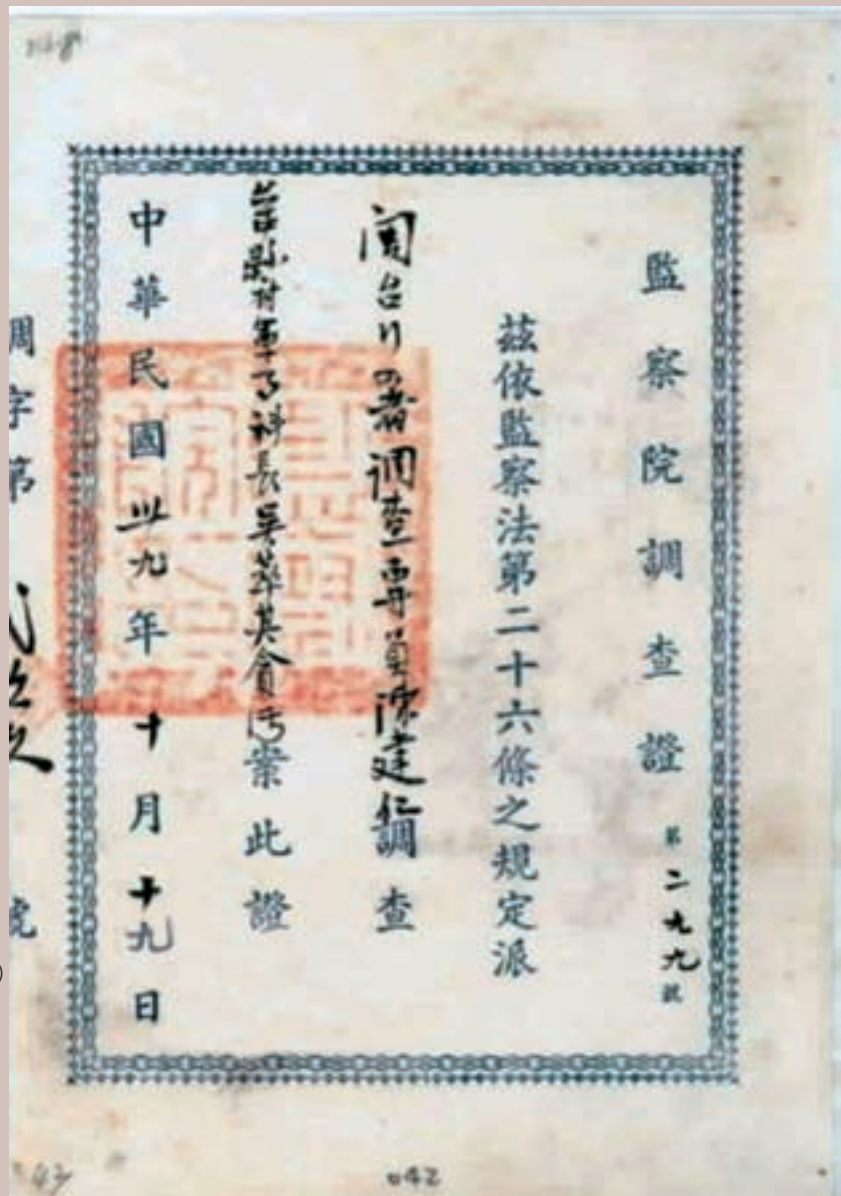 監察院調查證 第二九九號
茲依監察法第二十六條之規定派
閩台行署調查專員 建仁調查
台 縣府軍事科長吳萃英貪污案此證
中華民國卅九年十月十九日
調字第 號
042
43